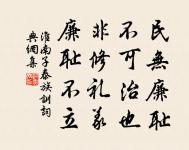 民無廉恥
不可治也
非修礼義
廉恥不立
淮南子泰族訓詞
興網集